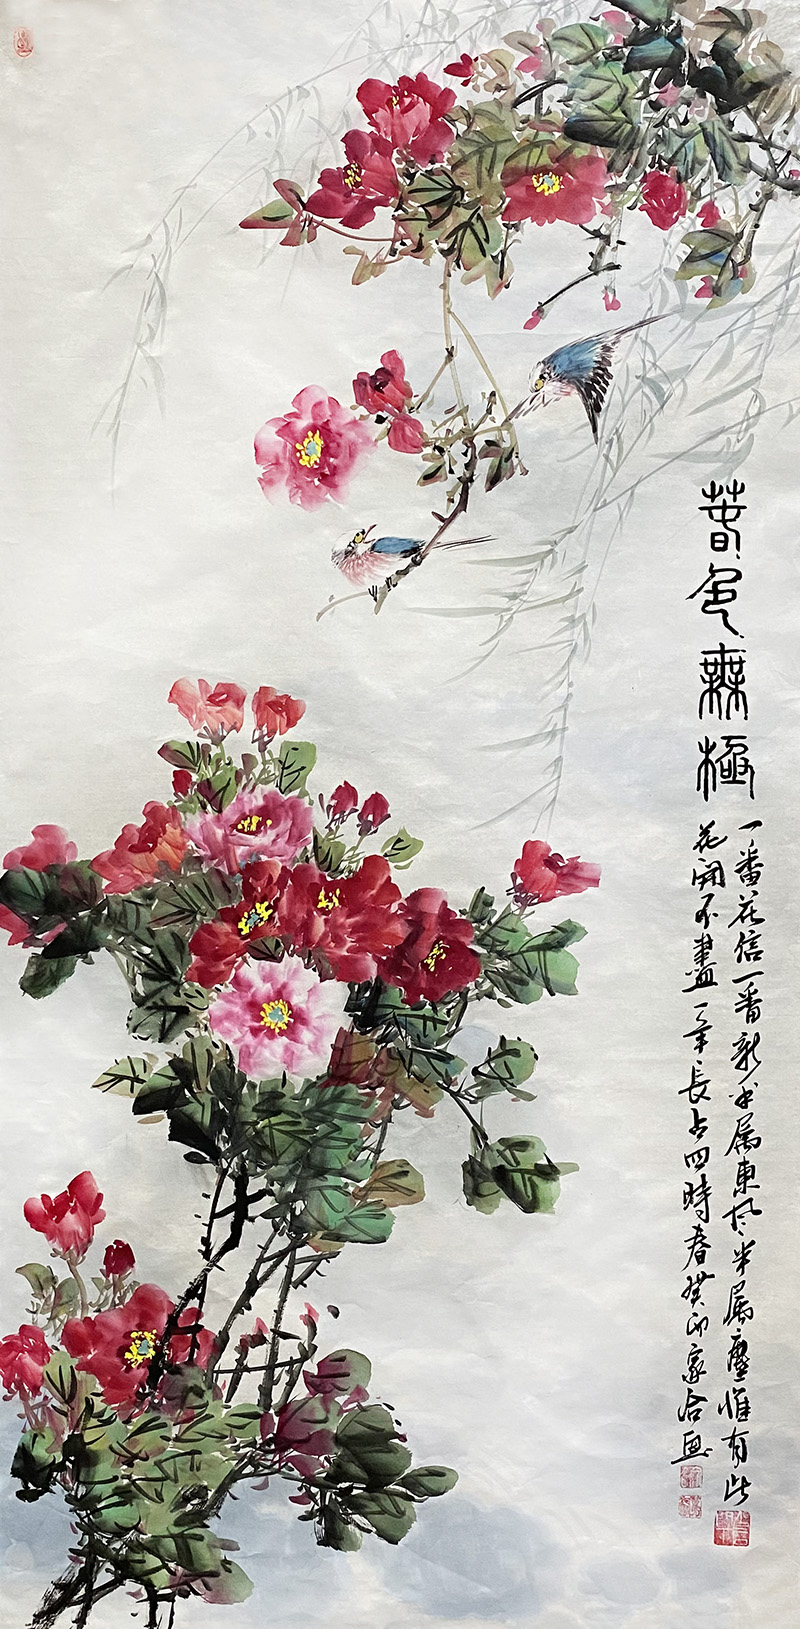 春色無極
一番花信一番新半属東风半属塵惟有此
花開不盡一年長占四時春癸卯家合画